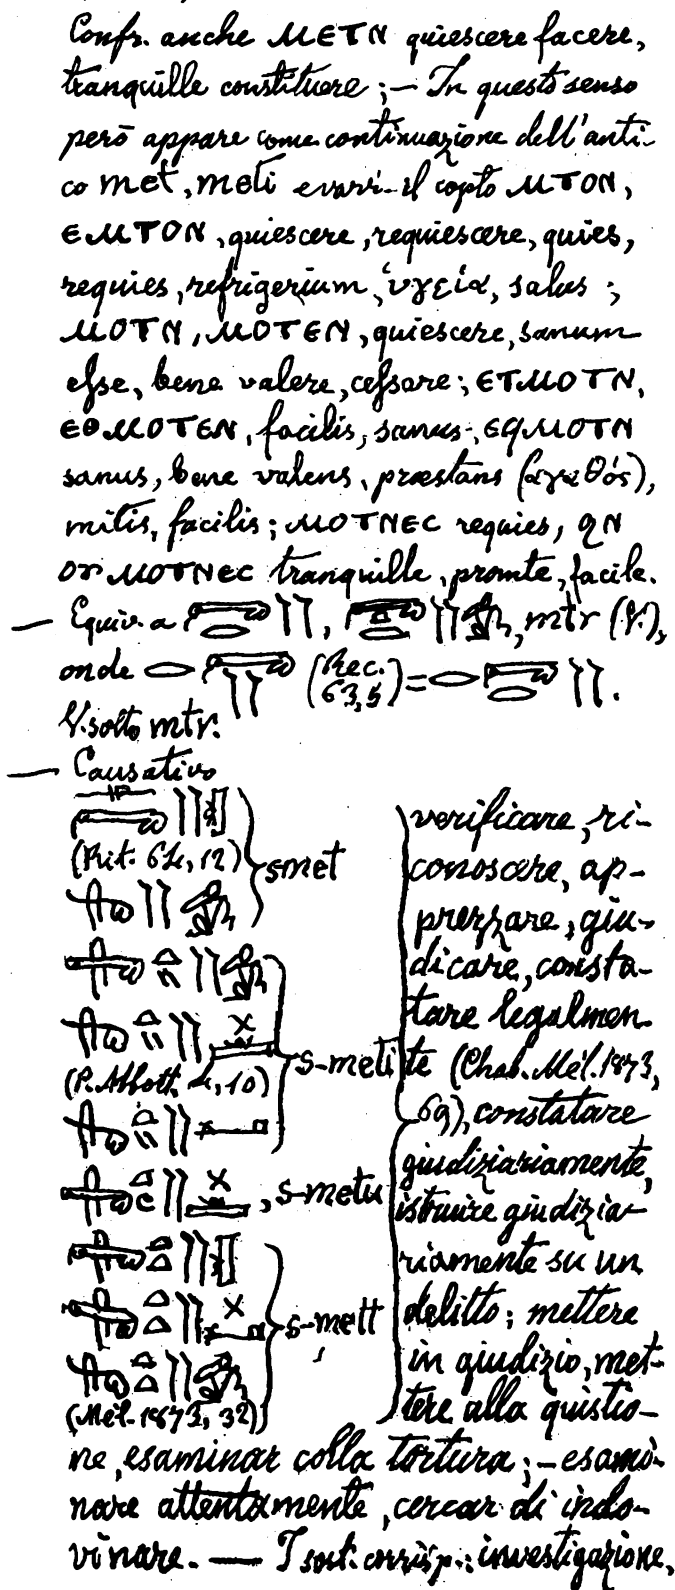 Confr. anche ⲙⲉⲧⲛ quiescere facere,
tranquille constituere ; — In questo senso
però appare come continuazione dell'anti-
co met, meti e varr. il copto ⲙⲧⲟⲛ,
ⲉⲙⲧⲟⲛ, quiescere, requiescere, quies,
requies, refrigerium, ὑγεία, salus ;
ⲙⲟⲧⲛ, ⲙⲟⲧⲉⲛ, quiescere, sanum
esse, bene valere, cessare ; ⲉⲧⲙⲟⲧⲛ,
ⲉⲑⲙⲟⲧⲉⲛ, facilis, sanus, ⲉϥⲙⲟⲧⲛ
sanus, bene valens, præstans (ἀγαθός),
mitis, facilis ; ⲙⲟⲧⲛⲉⲥ requies, ϩⲛ
ⲟⲩⲙⲟⲧⲛⲉⲥ tranquille, promte, facile.
— Equiv. a , , mtr (V.),
onde (Rec.
63,5) = .
V. sotto mtr.
— Causativo
(Rit. 64, 12) smet
(P. Abbott. 4, 10) s-meti
, s-metu
s-mett
(Mél. 1873, 32)
verificare, ri-
conoscere, ap-
prezzare, giu-
dicare, consta-
tare legalmen-
te (Chab. Mél. 1873,
69), constatare
giudiziariamente,
istruire giudizia-
riamente su un
delitto ; mettere
in giudizio, met-
tere alla quistio-
ne, esaminar colla tortura ; — esami-
nare attentamente, cercar di indo-
vinare. — I sost. corrisp.: investigazione,